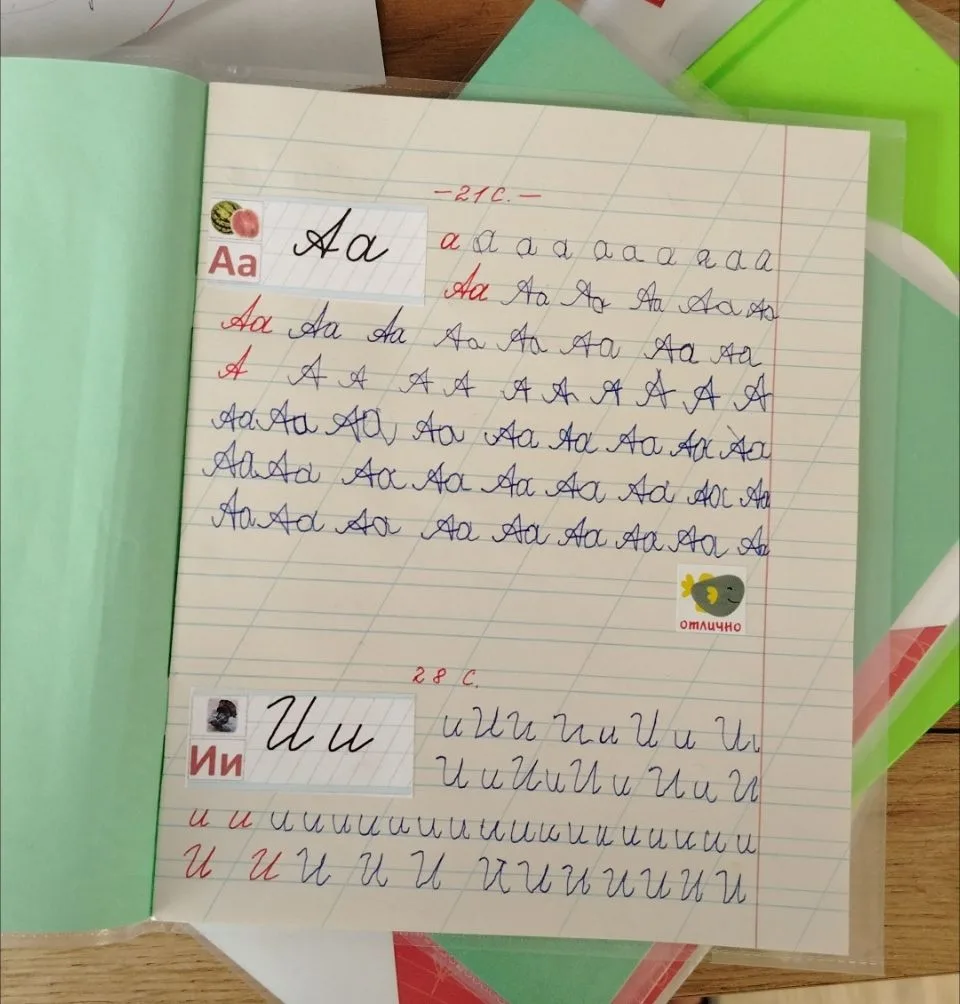 —21 С.—
Аа
Аа
а а а а а а а а а а
Аа Аа Аа Аа Аа Аа
Аа Аа Аа Аа Аа Аа Аа Аа
А А А А А А А А А А А
Аа Аа Аа Аа Аа Аа Аа Аа Аа
Аа Аа Аа Аа Аа Аа Аа Аа Аа
Аа Аа Аа Аа Аа Аа Аа Аа Аа
отлично
28 С.
Ии
Ии
и И И И и И и И и
И и И и И и И и И
и и и и и и и и и и и и и и и и и и и
И И И И И И И И И И И И